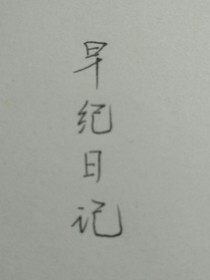 早纪日记